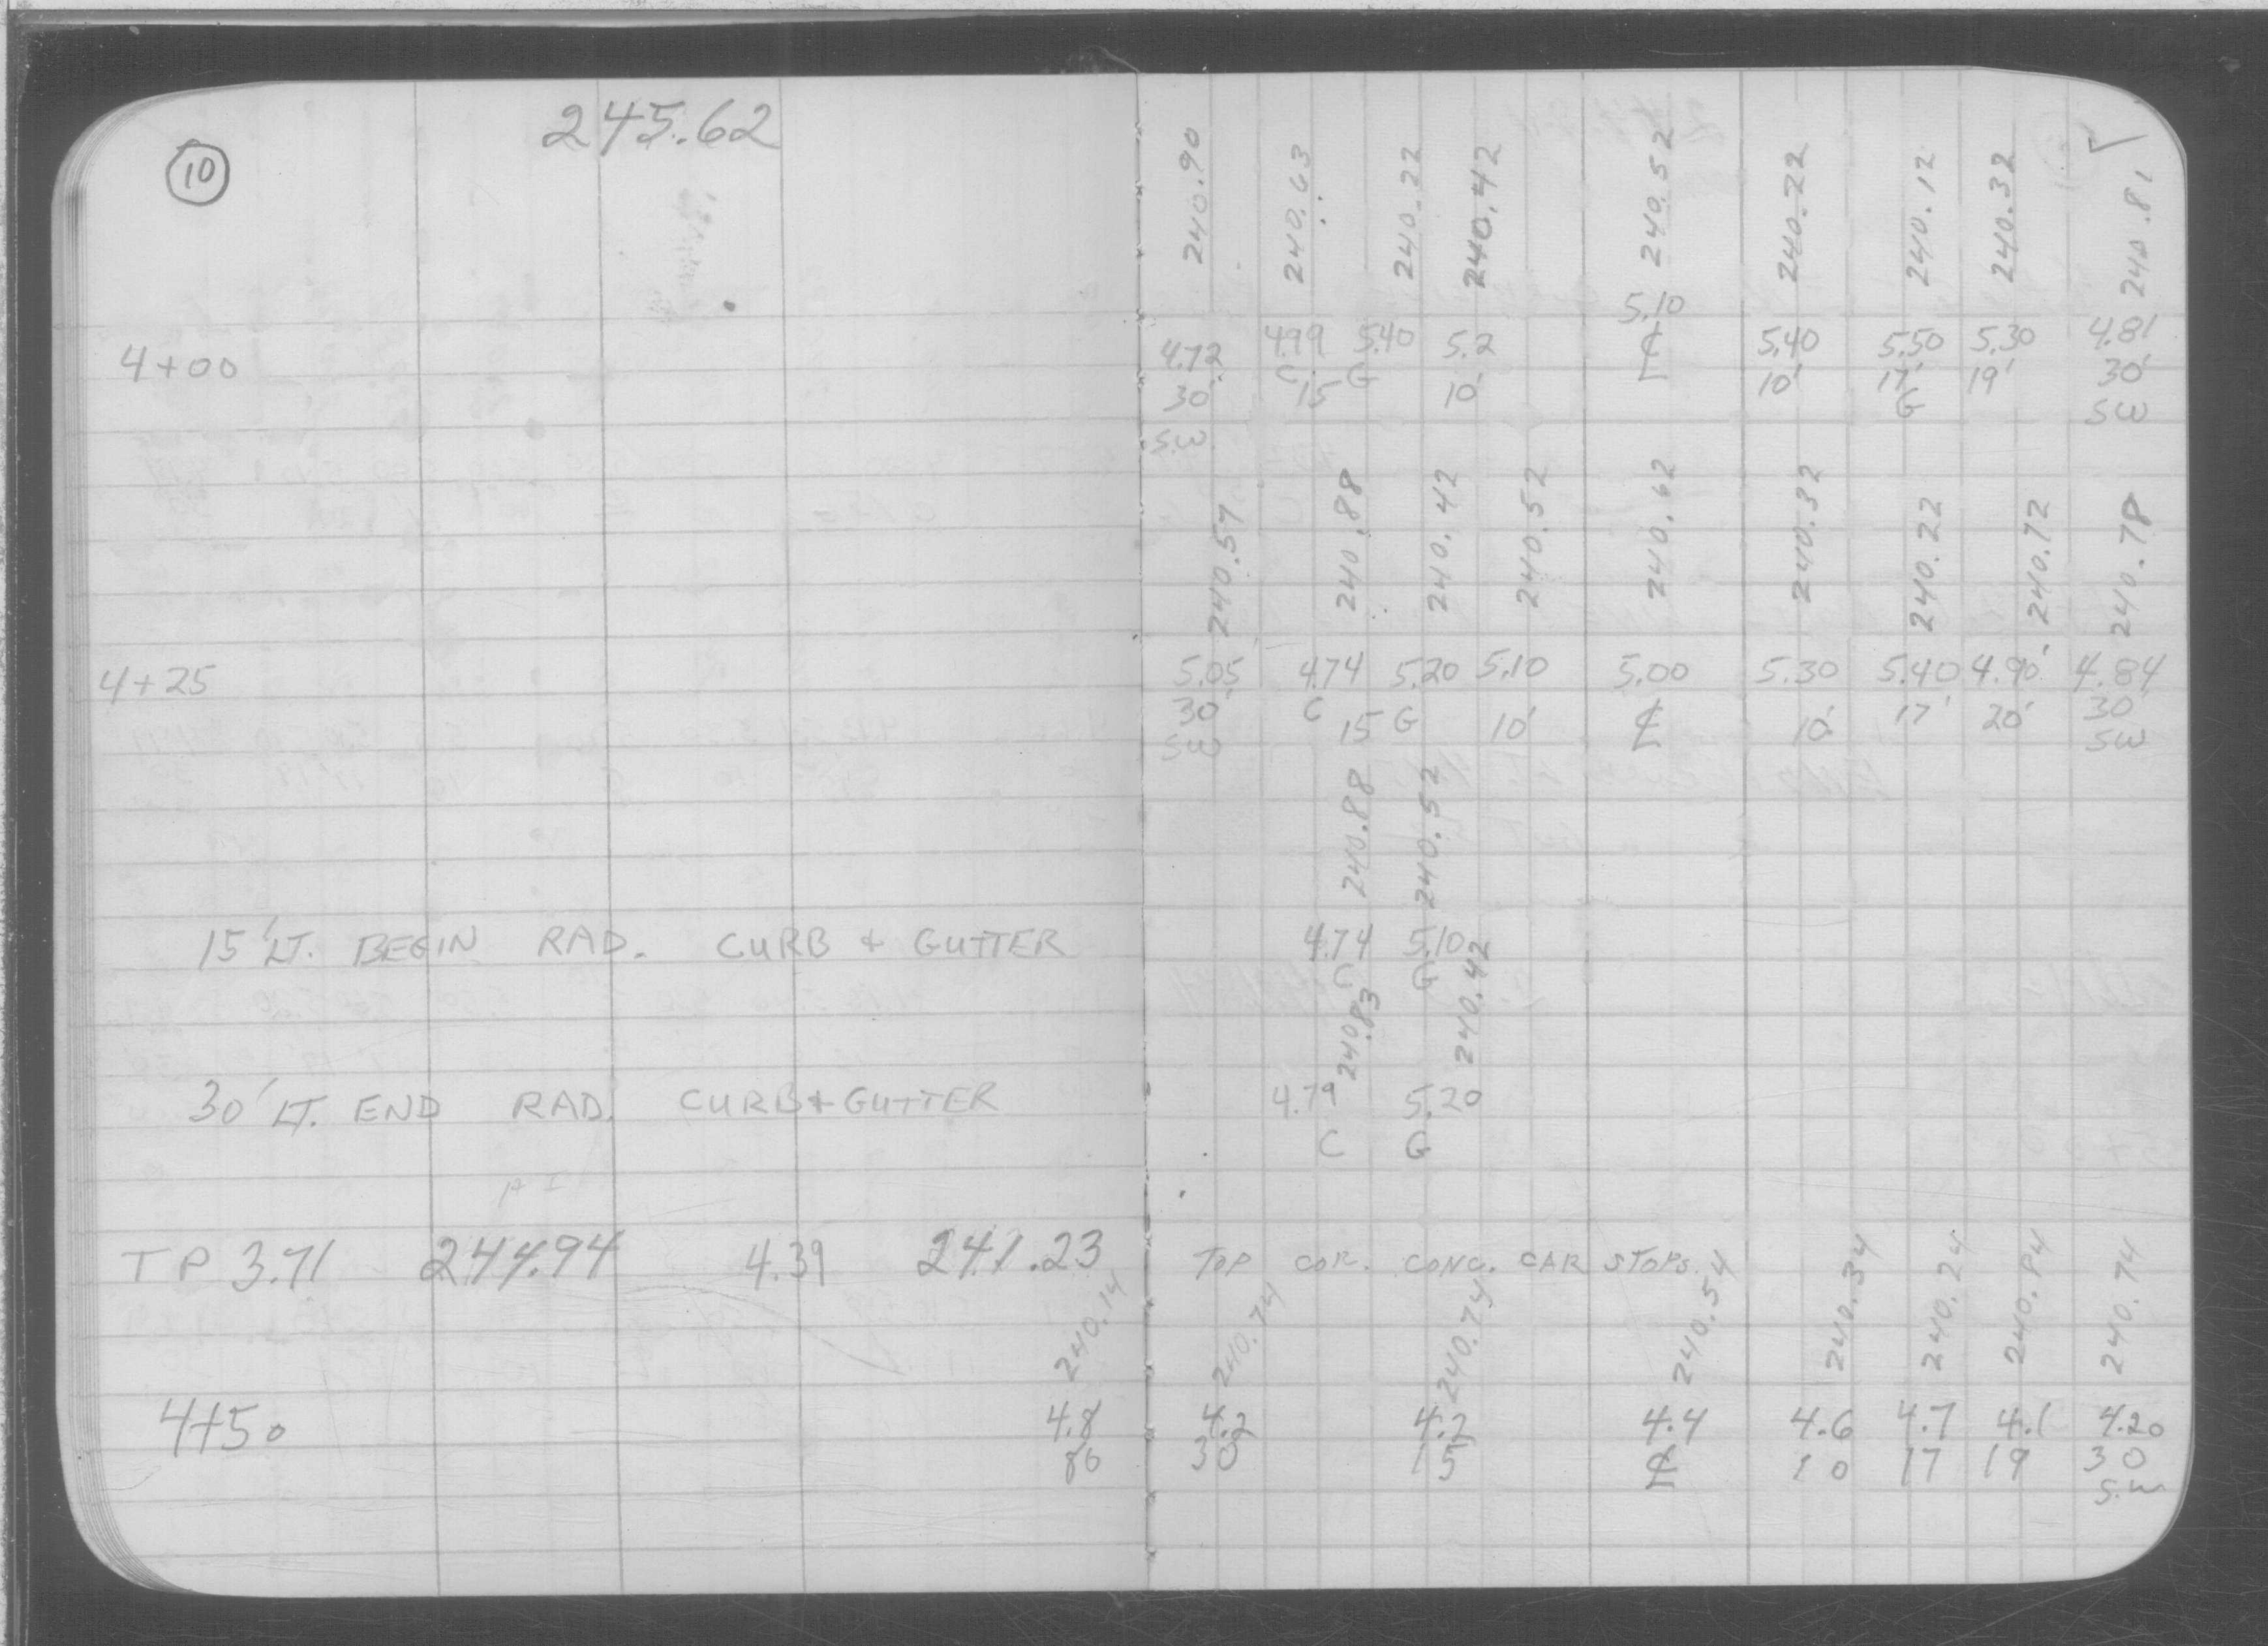 245.62
10
240.90 240.63 240.22 240.42 240.52 240.22 240.12 240.32 240.81
5.10
4+00 4.72 4.99 5.40 5.2 ℄ 5.40 5.50 5.30 4.81
30' C 15 G 10' 10' 17' 19' 30'
S.W. G SW
240.57 240.88 240.42 240.52 240.62 240.32 240.22 240.72 240.78
4+25 5.05 4.74 5.20 5.10 5.00 5.30 5.40 4.90' 4.84
30' C 15 G 10' ℄ 10' 17' 20' 30'
SW SW
240.88 240.52
15' LT. BEGIN RAD. CURB + GUTTER 4.74 5.10
C G
240.83 240.42
30' LT. END RAD. CURB + GUTTER 4.79 5.20
C G
HI
TP 3.71 244.94 4.39 241.23 TOP COR. CONC. CAR STOPS.
240.14 240.74 240.74 240.54 240.34 240.24 240.84 240.74
4+50 4.8 4.2 4.2 4.4 4.6 4.7 4.1 4.20
30 15 ℄ 10 17 19 30
S.W